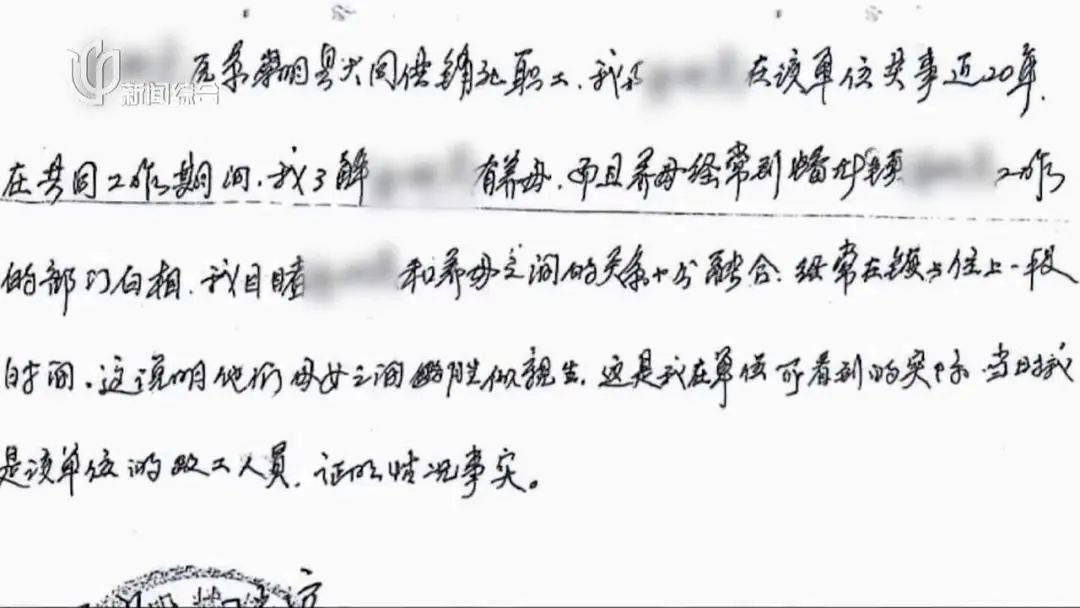 新闻综合
原系崇明县大同供销社职工,我和 在该单位共事近20年,
在共同工作期间,我了解 有养母,而且养母经常到 镇 工作
的部门白相,我目睹 和养母之间的关系十分融合,经常在镇上住上一段
时间。这说明他们母女之间 胜似亲生,这是我在单位可看到的实际,当时我
是该单位的政工人员,证明情况事实。